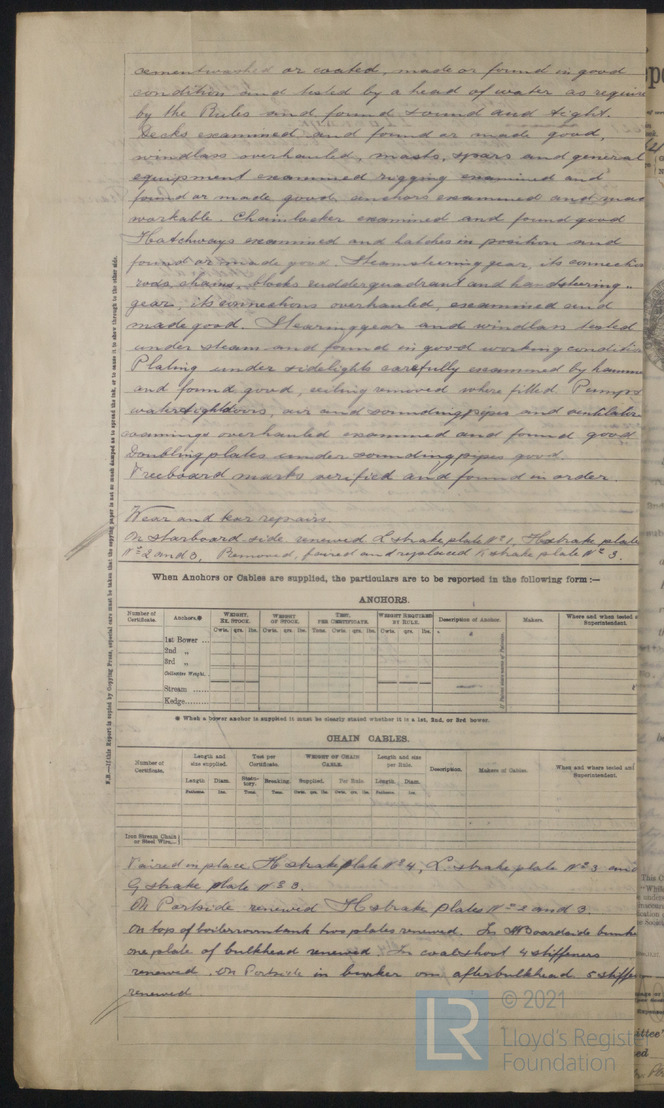 cementwashed or coated, made or found in good
condition and tested by a head of water as require
by the Rules and found sound and tight.
Decks examined and found or made good,
windlass overhauled, masts, spars and general
equipment examined rigging examined and
found or made good, anchors examined and mad
workable. Chainlocker examined and found good
Hatchways examined and hatches in position and
found or made good. Steamsteeringgear, its connectin
rods, chains, blocks rudderquadrant and handsteering-
gear, its connections overhauled, examined and
made good. Stearinggear and windlass tested
under steam and found in good working conditio
Plating under sidelights carefully examined by hamme
and found good, ceiling removed where fitted Pumps
watertightdoors, air and soundingpipes and ventilator
coamings overhauled examined and found good
Doublingplates under soundingpipes good.
Freeboard marks verified and found in order.
Wear and tear repairs.
On starboard side renewed L strake plate No 1, H strake plate
No 2 and 3, Removed, faired and replaced K strake plate No 3.
N.B.—If this Report is copied by Copying Press, especial care must be taken that the copying paper is not so much damped as to spread the ink, or to cause it to show through to the other side.
When Anchors or Cables are supplied, the particulars are to be reported in the following form :—
ANCHORS.
Number of Certificate.
Anchors.
WEIGHT, EX. STOCK.
WEIGHT OF STOCK.
TEST, PER CERTIFICATE.
WEIGHT REQUIRED BY RULE.
Description of Anchor.
Makers.
Where and when tested a
Superintendent.
Cwts. qrs. lbs. Cwts. qrs. lbs. Tons. Cwts. qrs. lbs. Cwts. qrs. lbs.
1st Bower ...
2nd „
3rd „
Collective Weight.
Stream ......
Kedge........
When a bower Anchor is supplied it must be clearly stated whether it is a 1st, 2nd, or 3rd bower.
CHAIN CABLES.
Number of Certificate.
Length and size supplied.
Test per Certificate.
WEIGHT OF CHAIN CABLE.
Length and size per Rule.
Description.
Makers of Cables.
When and where tested and
Superintendent.
Length. Diam. Statutory. Breaking. Supplied. Per Rule. Length. Diam.
Fathoms. Ins. Tons. Tons. Cwts. qrs. lbs. Cwts. qrs. lbs. Fathoms. Ins.
Iron Stream Chain or Steel Wire...
Faired in place H strakeplate No 4, L strake plate No 3 and
G strake plate No 3.
On Portside renewed H strake plates No 2 and 3.
On top of boilerroomtank two plates renewed. In StBoardside bunke
one plate of bulkhead renewed. In coalshoot 4 stiffeners
renewed. On Portside in bunker on afterbulkhead 5 stiffe
renewed
© 2021
LR
Lloyd's Register
Foundation